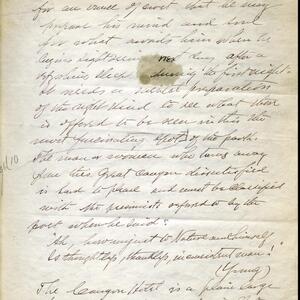 for an ounce of
his mind and
for what awaits him when he
begins sight seeing day after a
refreshing sleep during the first night.
It needs a
of the right kind to see what there
is offered to be seen within the
most fascinating spot of the park.
The man or woman who turns away
from this Great Canyon dissatisfied
is hard to please and must be classified
with the pessimists referred to by the
poet when he said:
"Ah, how unjust to Nature and himself
Is thoughtless, thankless, inconsistent man!"
(Young)
The Canyon Hotel is a plain large